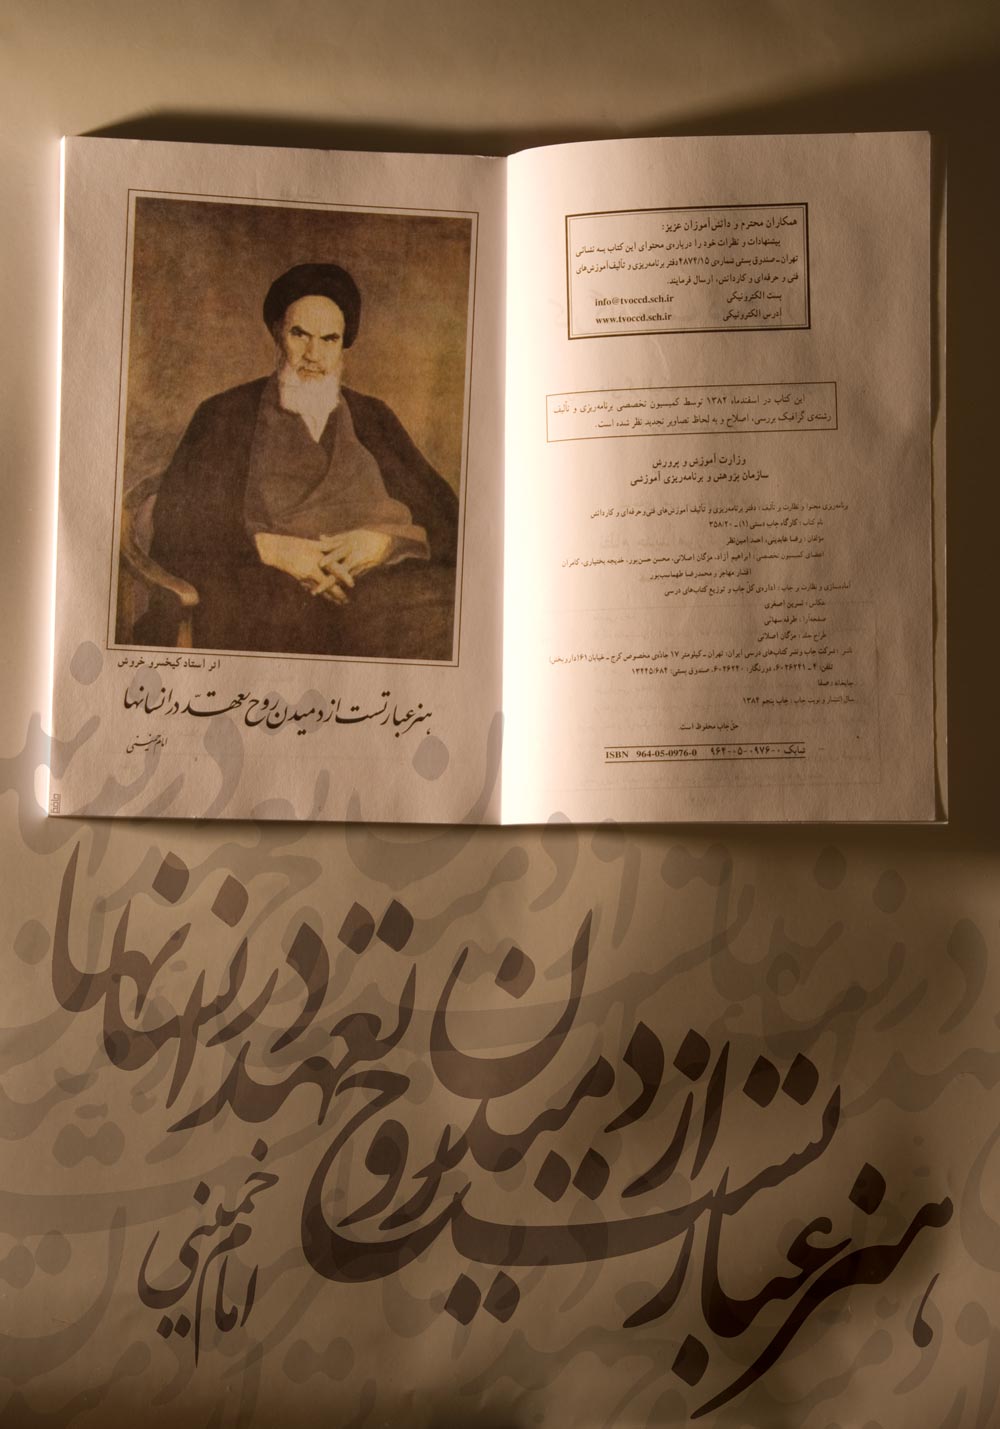 همکاران محترم و دانش‌آموزان عزیز:
پیشنهادات و نظرات خود را درباره‌ی محتوای این کتاب به نشانی
تهران ـ صندوق پستی شماره‌ی ۴۸۷۴/۱۵ دفتر برنامه‌ریزی و تألیف آموزش‌های
فنی و حرفه‌ای و کاردانش، ارسال فرمایند.
پست الکترونیکی info@tvoccd.sch.ir
آدرس الکترونیکی www.tvoccd.sch.ir
این کتاب در اسفندماه ۱۳۸۲ توسط کمیسیون تخصصی برنامه‌ریزی و تألیف
رشته‌ی گرافیک بررسی، اصلاح و به لحاظ تصاویر تجدید نظر شده است.
وزارت آموزش و پرورش
سازمان پژوهش و برنامه‌ریزی آموزشی
برنامه‌ریزی محتوا و نظارت و تألیف: دفتر برنامه‌ریزی و تألیف آموزش‌های فنی و حرفه‌ای و کاردانش
نام کتاب: کارگاه چاپ دستی (۱) ـ ۳۵۸/۲۰
مؤلفان: رضا عابدینی، احمد امین‌نظر
اعضای کمیسیون تخصصی: ابراهیم آزاد، مژگان اصلانی، محسن حسن‌پور، خدیجه بختیاری، کامران
افشار مهاجر و محمدرضا طهماسب‌پور
آماده‌سازی و نظارت بر چاپ: اداره‌ی کل چاپ و توزیع کتاب‌های درسی
عکاس: نسرین اصغری
صفحه‌آرا: طرفه سهائی
طراح جلد: مژگان اصلانی
ناشر: شرکت چاپ و نشر کتاب‌های درسی ایران: تهران ـ کیلومتر ۱۷ جاده‌ی مخصوص کرج ـ خیابان ۶۱ (داروپخش)
تلفن: ۴ ـ ۶۰۲۶۳۴۱، دورنگار: ۶۰۲۶۲۴۰، صندوق پستی: ۱۳۴۴۵/۶۸۴
چاپخانه: صفا
سال انتشار و نوبت چاپ: چاپ پنجم ۱۳۸۴
حق چاپ محفوظ است.
شابک ۰-۰۹۷۶-۰۵-۹۶۴ ISBN 964-05-0976-0
اثر استاد کیخسرو خروش
هنر عبارتست از دمیدن روح تعهّد در انسانها
امام خمینی
هنر عبارتست از دمیدن روح تعهد در انسانها
امام خمینی